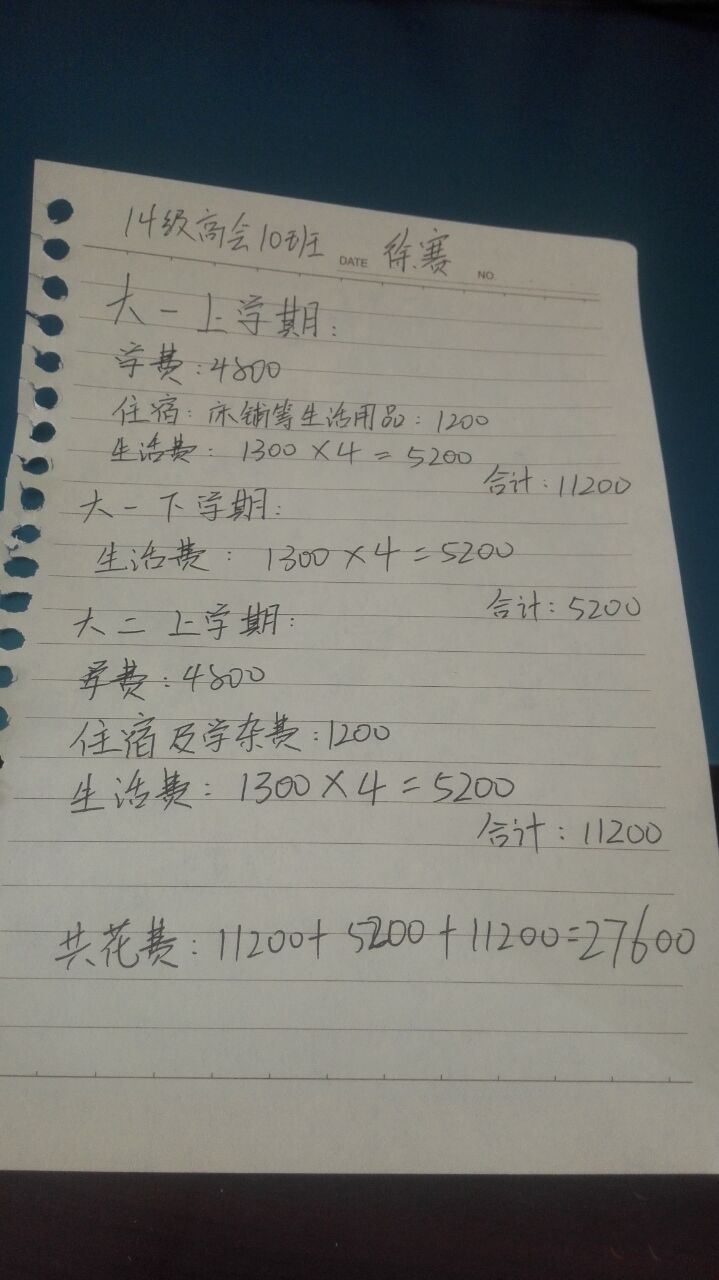 14级商会10班 DATE 徐赛 NO.
大一上学期:
学费:4800
住宿:床铺等生活用品:1200
生活费: 1300×4=5200
合计:11200
大一下学期:
生活费: 1300×4=5200
合计:5200
大二上学期:
学费:4800
住宿及学杂费:1200
生活费: 1300×4=5200
合计:11200
共花费:11200+5200+11200=27600